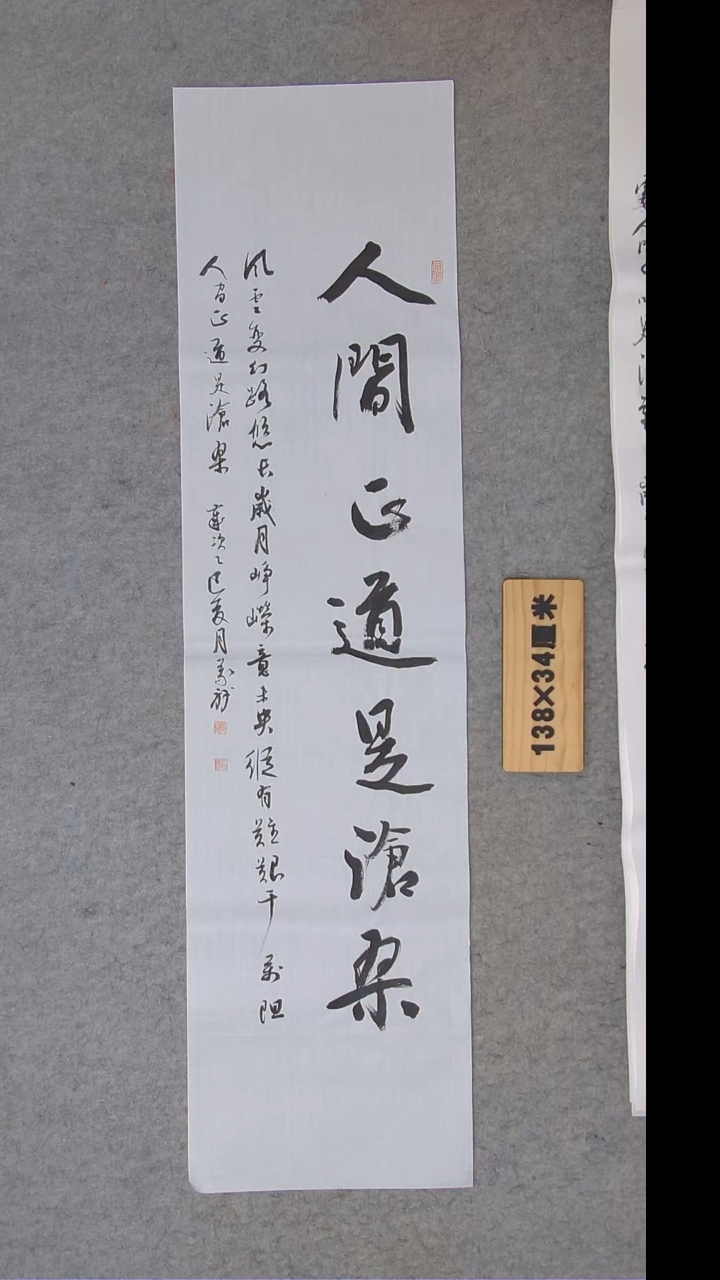 人間正道是滄桑
風雲變幻路悠長歲月崢嶸竟未央縱有艱難千萬阻
人間正道是滄桑 歲次乙巳夏月
138×34厘米